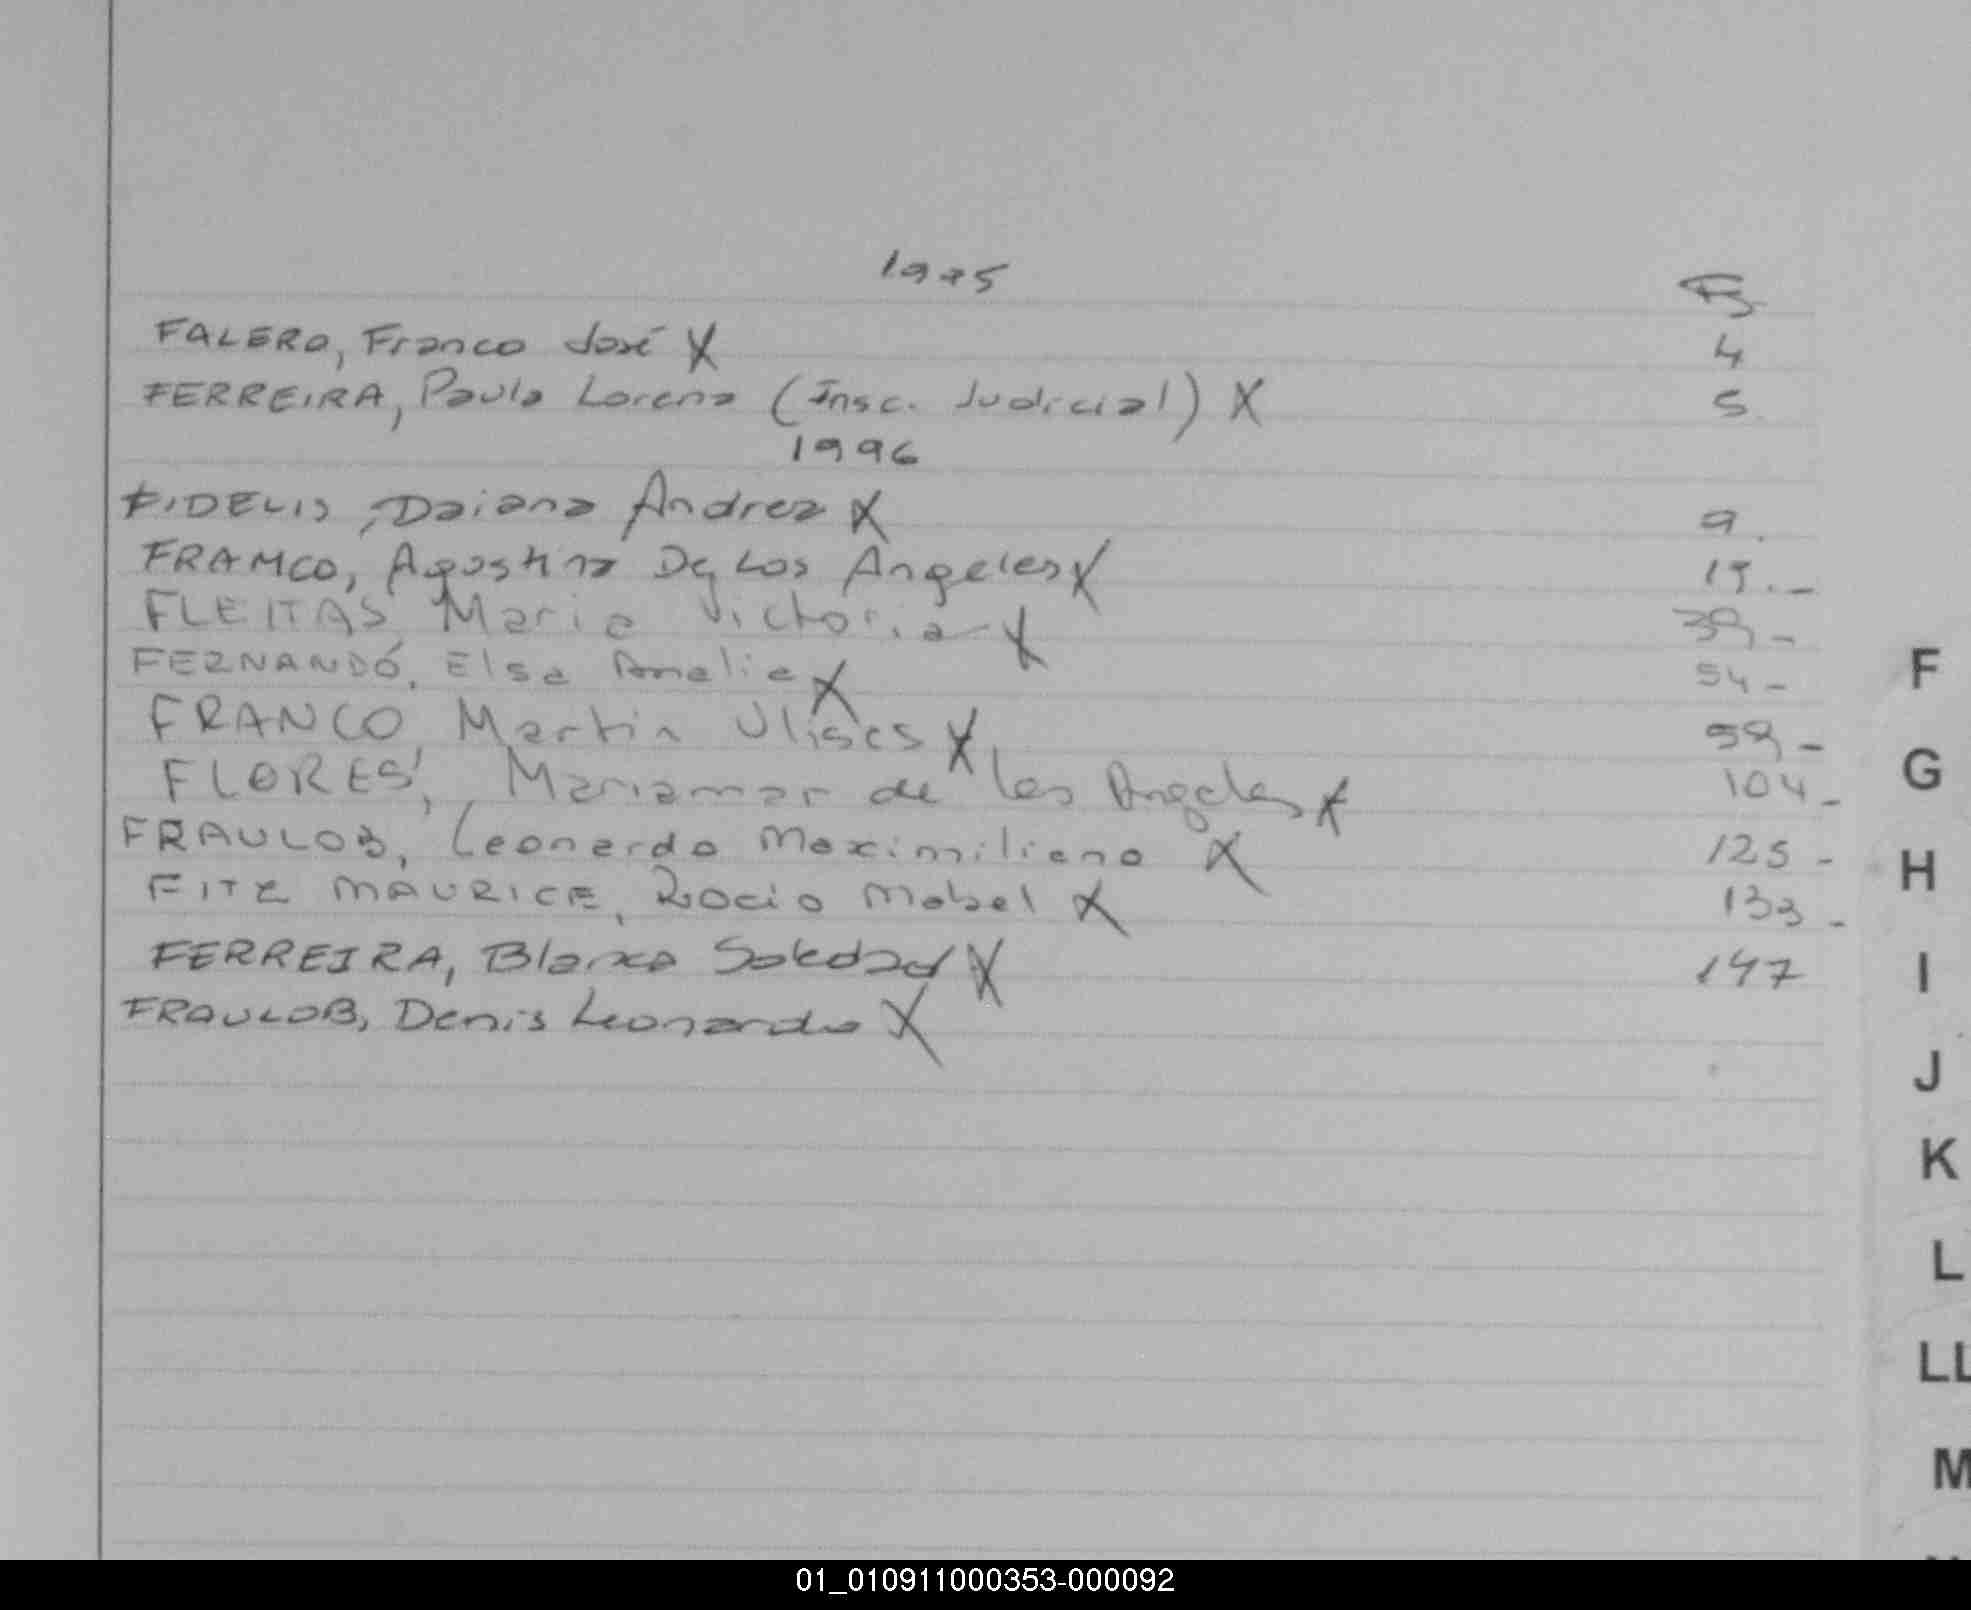 1995 F.
FALERO, Franco José X 4
FERREIRA, Paula Lorena (Insc. Judicial) X 5
1996
FIDELIS, Daiana Andrea X 9.
FRANCO, Agostina De Los Angeles X 19.-
FLEITAS Maria Victoria X 39-
FERNANDÓ, Elsa Amalia X 54-
FRANCO, Martin Ulises X 59-
FLORES, Mariamar de los Angeles X 104-
FRAULOB, Leonardo Maximiliano X 125-
FITZ MAURICE, Rocio Mabel X 133-
FERREIRA, Blanca Soledad X 147
FRAULOB, Denis Leonardo X
F
G
H
I
J
K
L
LL
M
01_010911000353-000092